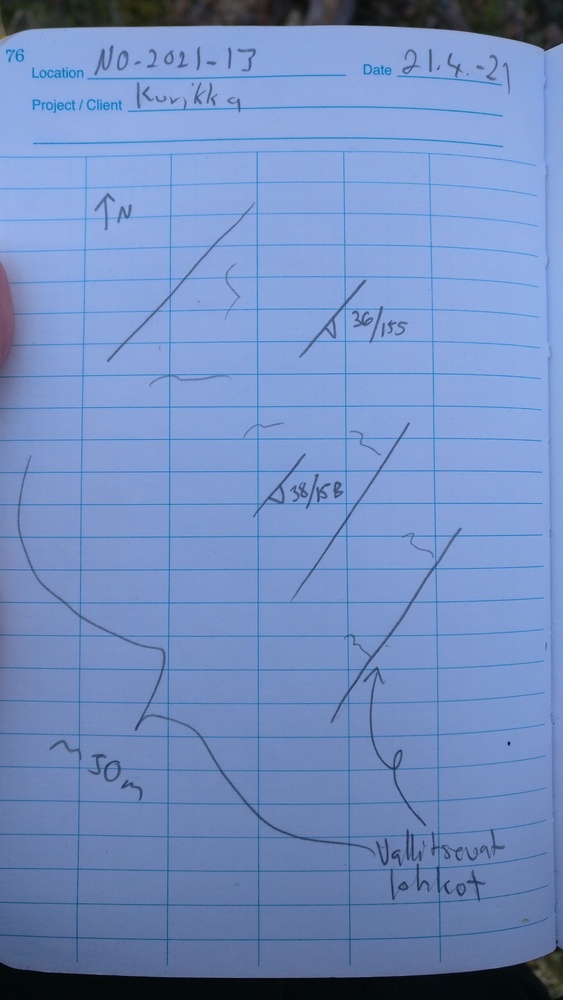 76
Location NO-2021-13 Date 21.4.-21
Project / Client Kurikka
↑N
36/155
38/158
~50m
Vallitsevat
lohkot